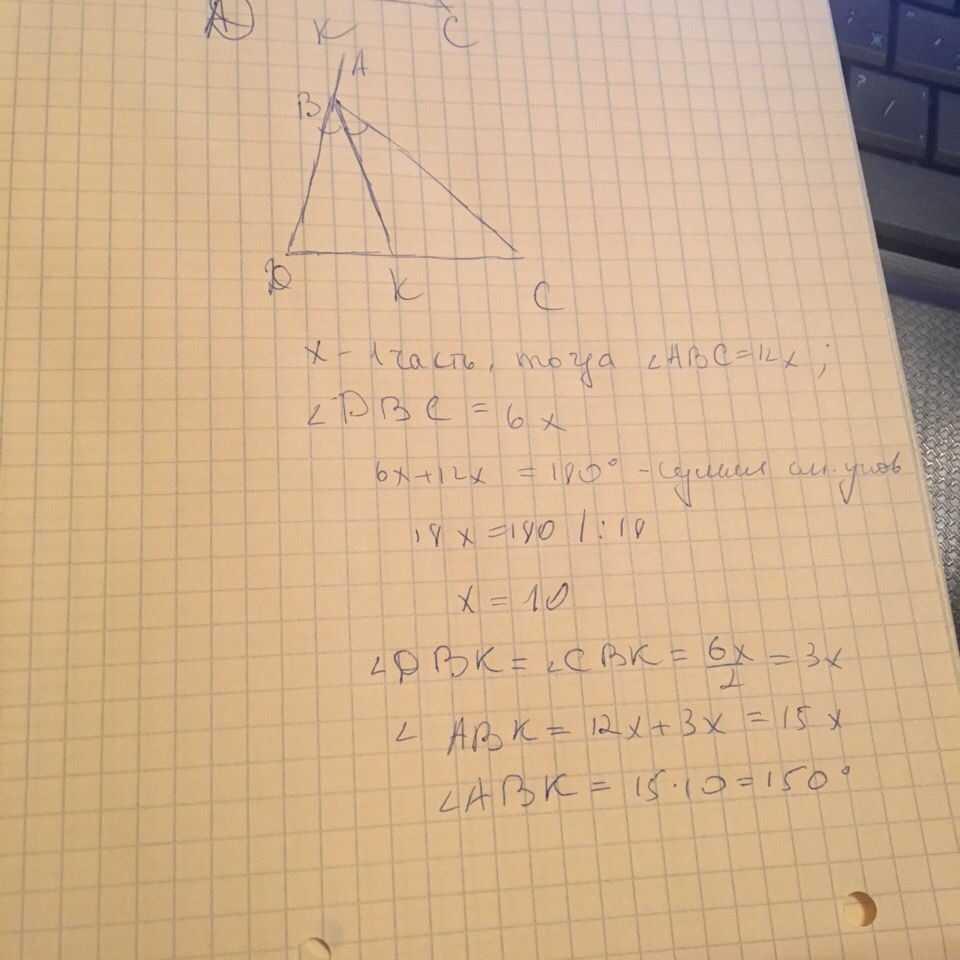 A
K C
A
B
D K C
x - 1 часть, тогда ∠ABC = 12x ;
∠DBC = 6x
6x+12x = 180° - сумма см. углов
18x = 180 / : 18
x = 10
∠DBK = ∠CBK = 6x/2 = 3x
∠ ABK = 12x + 3x = 15x
∠ABK = 15·10 = 150°
Ж
?
/